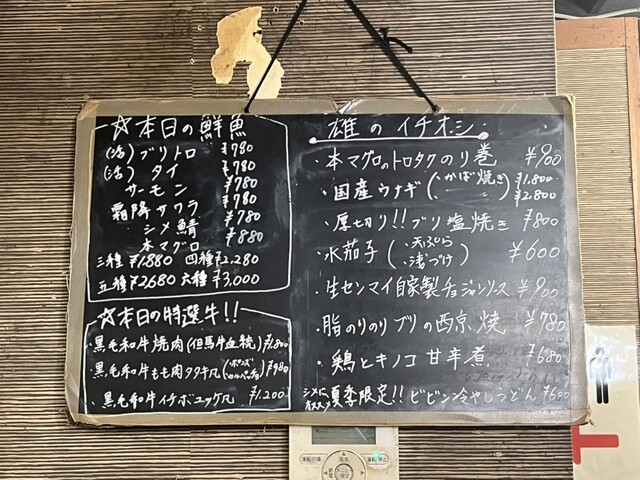 ☆本日の鮮魚
(活)ブリトロ ¥780
(活)タイ ¥780
サーモン ¥780
霜降サワラ ¥780
シメ鯖 ¥780
本マグロ ¥880
三種¥1.880 四種¥2.280
五種¥2680 六種¥3,000
☆本日の特選牛!!
黒毛和牛焼肉(但馬牛血統) ¥1,800
黒毛和牛もも肉タタキ風(・ポンズ ・カルパッチョ) ¥980
・黒毛和牛イチボユッケ風 ¥1.200
雄のイチオシ
・本マグロのトロタクのり巻 ¥900
・国産ウナギ(・かば焼き ¥1.800
¥2.800
・厚切り!!ブリ塩焼き ¥800
・水茄子(・天ぷら ・浅づけ) ¥600
・生センマイ自家製チョジャンソース ¥900
・脂のりのりブリの西京焼 ¥780
・鶏とキノコ甘辛煮 ¥680
シメにオススメ 夏季限定!!ビビン冷やしうどん ¥600
運転切換
温度
運転/停止